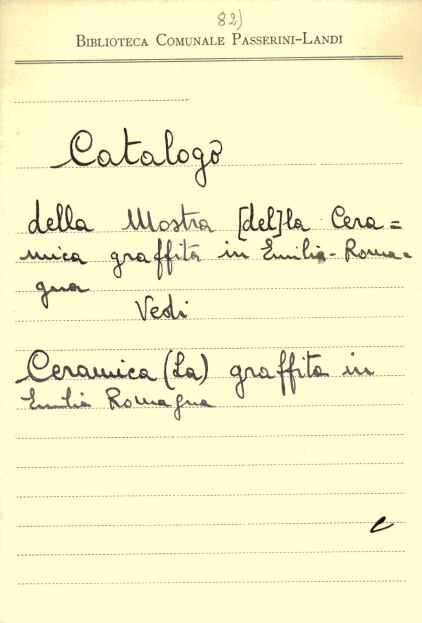 82)
BIBLIOTECA COMUNALE PASSERINI-LANDI
Catalogo
della Mostra [del]la Cera=
mica graffita in Emilia-Roma=
gna
Vedi
Ceramica (La) graffita in
Emilia Romagna
e